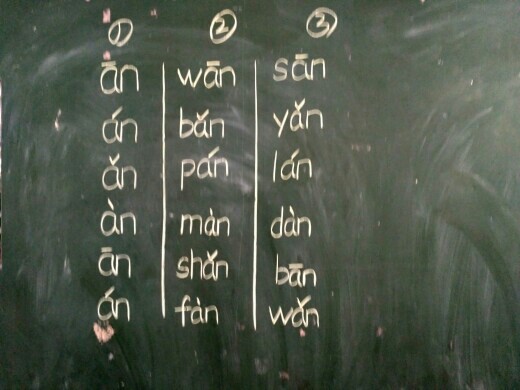 ① ② ③
ān wān sān
án bǎn yǎn
ǎn pán lán
àn màn dàn
ān shǎn bān
án fàn wǎn